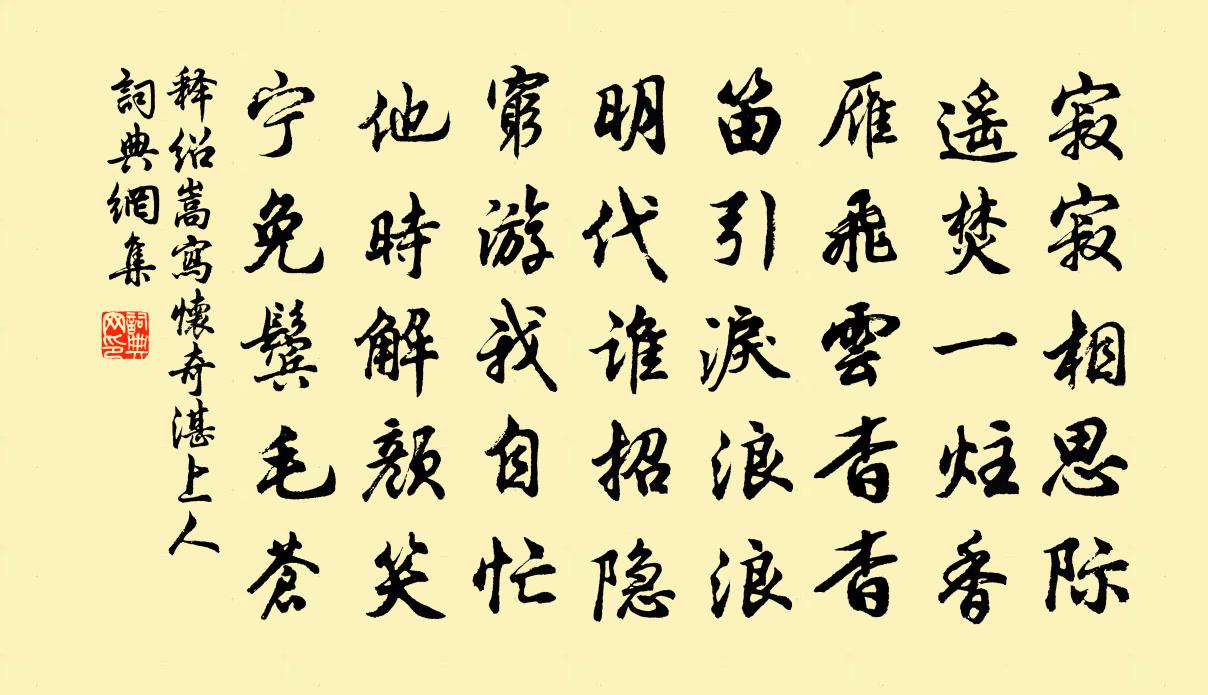 寂寂相思际
遥焚一炷香
雁飛雲杳杳
笛引淚浪浪
明代谁招隐
窮游我自忙
他時解顔笑
宁免鬂毛蒼
释绍嵩寫懷奇湛上人
詞典網集
詞典网印